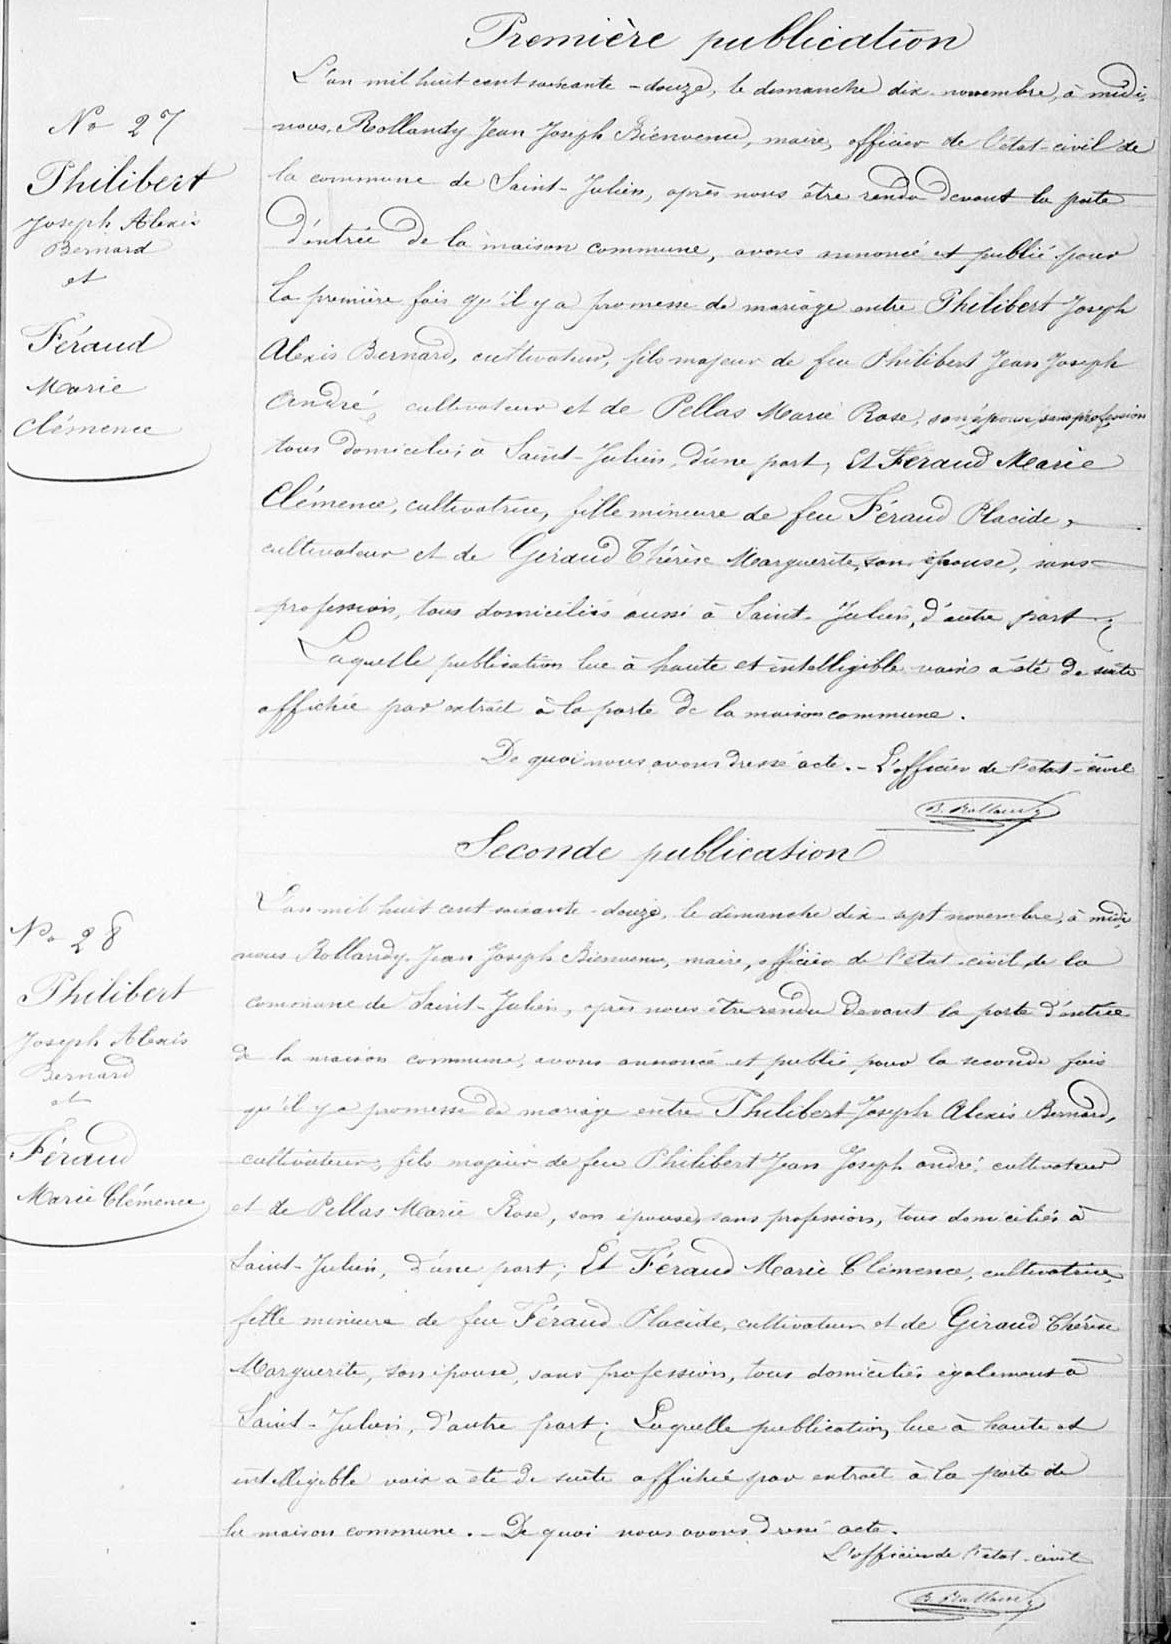 Première publication
L'an mil huit cent soixante-douze, le dimanche dix novembre, à midi,
No 27
nous, Rollandy Jean Joseph Bienvenu, maire, officier de l'état-civil de
Philibert
la commune de Saint-Julien, après nous être rendu devant la porte
Joseph Alexis
Bernard
d'entrée de la maison commune, avons annoncé et publié pour
et
la première fois qu'il y a promesse de mariage entre Philibert Joseph
Féraud
Alexis Bernard, cultivateur, fils majeur de feu Philibert Jean Joseph
Marie
André, cultivateur et de Pellas Marie Rose, son épouse, sans profession
Clémence
tous domiciliés à Saint-Julien, d'une part, Et Féraud Marie
Clémence, cultivatrice, fille mineure de feu Féraud Placide,
cultivateur et de Giraud Thérèse Marguerite, son épouse, sans
profession, tous domiciliés aussi à Saint-Julien, d'autre part;
Laquelle publication lue à haute et intelligible voix a été de suite
affichée par extrait à la porte de la maison commune.
De quoi nous avons dressé acte. - L'officier de l'état-civil
B. Rollandy
Seconde publication
L'an mil huit cent soixante-douze, le dimanche dix-sept novembre, à midi,
No 28
nous Rollandy Jean Joseph Bienvenu, maire, officier de l'état-civil de la
Philibert
commune de Saint-Julien, après nous être rendu devant la porte d'entrée
Joseph Alexis
Bernard
de la maison commune, avons annoncé et publié pour la seconde fois
et
qu'il y a promesse de mariage entre Philibert Joseph Alexis Bernard,
Féraud
cultivateur, fils majeur de feu Philibert Jean Joseph andré, cultivateur
Marie Clémence
et de Pellas Marie Rose, son épouse, sans profession, tous domiciliés à
Saint-Julien, d'une part; Et Féraud Marie Clémence, cultivatrice,
fille mineure de feu Féraud Placide, cultivateur et de Giraud Thérèse
Marguerite, son épouse, sans profession, tous domiciliés également à
Saint-Julien, d'autre part; Laquelle publication, lue à haute et
intelligible voix a été de suite affichée par extrait à la porte de
la maison commune. - De quoi nous avons dressé acte.
L'officier de l'état-civil
B. Rollandy